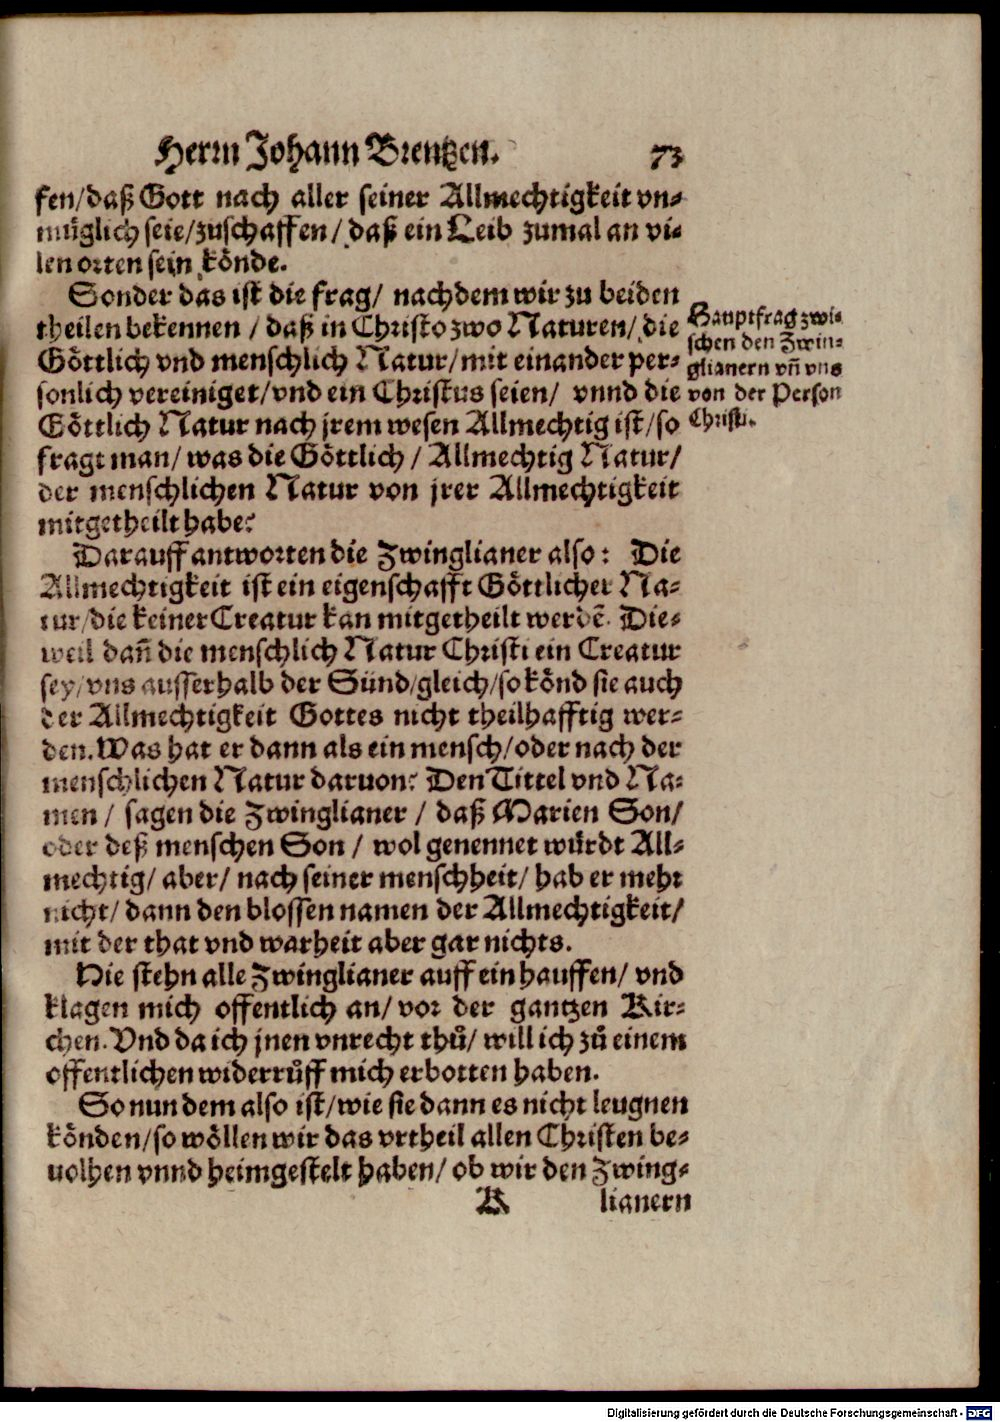 Herrn Johann Brentzen. 73
fen/daß Gott nach aller seiner Allmechtigkeit vn-
müglich seie/zuschaffen/daß ein Leib zumal an vi-
len orten sein könde.
Sonder das ist die frag/ nachdem wir zu beiden
theilen bekennen / daß in Christo zwo Naturen/ die
Göttlich vnd menschlich Natur/mit einander per-
sonlich vereiniget/vnd ein Christus seien/ vnnd die
Göttlich Natur nach jrem wesen Allmechtig ist/so
fragt man/ was die Göttlich / Allmechtig Natur/
der menschlichen Natur von jrer Allmechtigkeit
mitgetheilt habe?
Hauptfrag zwi-
schen den Zwin-
glianern vñ vns
von der Person
Christi.
Darauff antworten die Zwinglianer also: Die
Allmechtigkeit ist ein eigenschafft Göttlicher Na-
tur/die keiner Creatur kan mitgetheilt werdẽ. Die-
weil dañ die menschlich Natur Christi ein Creatur
sey/vns ausserhalb der Sünd/gleich/so könd sie auch
der Allmechtigkeit Gottes nicht theilhafftig wer-
den. Was hat er dann als ein mensch/oder nach der
menschlichen Natur daruon? Den Tittel vnd Na-
men / sagen die Zwinglianer / daß Marien Son/
oder deß menschen Son / wol genennet würdt All-
mechtig/ aber/ nach seiner menschheit/ hab er mehr
nicht/ dann den blossen namen der Allmechtigkeit/
mit der that vnd warheit aber gar nichts.
Hie stehn alle Zwinglianer auff ein hauffen/ vnd
klagen mich offentlich an/ vor der gantzen Kir-
chen. Vnd da ich jnen vnrecht thů/ will ich zů einem
offentlichen widerrůff mich erbotten haben.
So nun dem also ist/wie sie dann es nicht leugnen
könden/so wöllen wir das vrtheil allen Christen be-
uolhen vnnd heimgestelt haben/ ob wir den Zwing-
K lianern
Digitalisierung gefördert durch die Deutsche Forschungsgemeinschaft - DFG